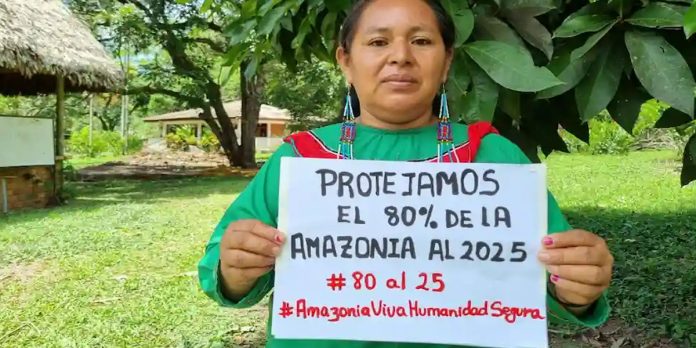 PROTEJAMOS
EL 80% DE LA
AMAZONIA AL 2025
#80 al 25
#AmazoniaVivaHumanidadSegura